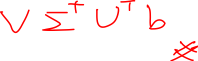 V Σ⁺ Uᵀ b